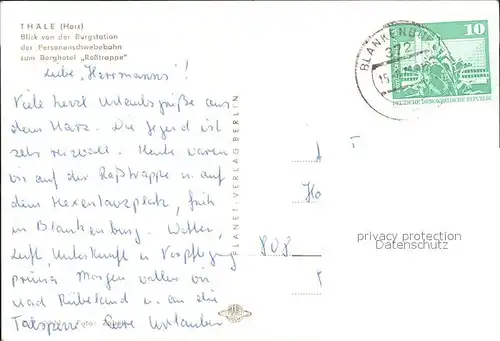 THALE (Harz)
Blick von der Bergstation
der Personenschwebebahn
zum Berghotel „Roßtrappe"
Liebe „Herrmanns"!
Viele herzl. Urlaubsgrüße aus
dem Harz. Die Gegend ist
sehr reizvoll. Heute waren
wir auf der Roßtrappe u. auf
dem Hexentanzplatz, früh
in Blankenburg. Wetter,
Luft, Unterkunft u. Verpflegung
prima. Morgen wollen wir
nach Rübeland u. an die
Talsperre. Eure Urlauber
PLANET-VERLAG BERLIN
BLANKENBURG
372
15.
10
DEUTSCHE DEMOKRATISCHE REPUBLIK
Ho
808
privacy protection
Datenschutz